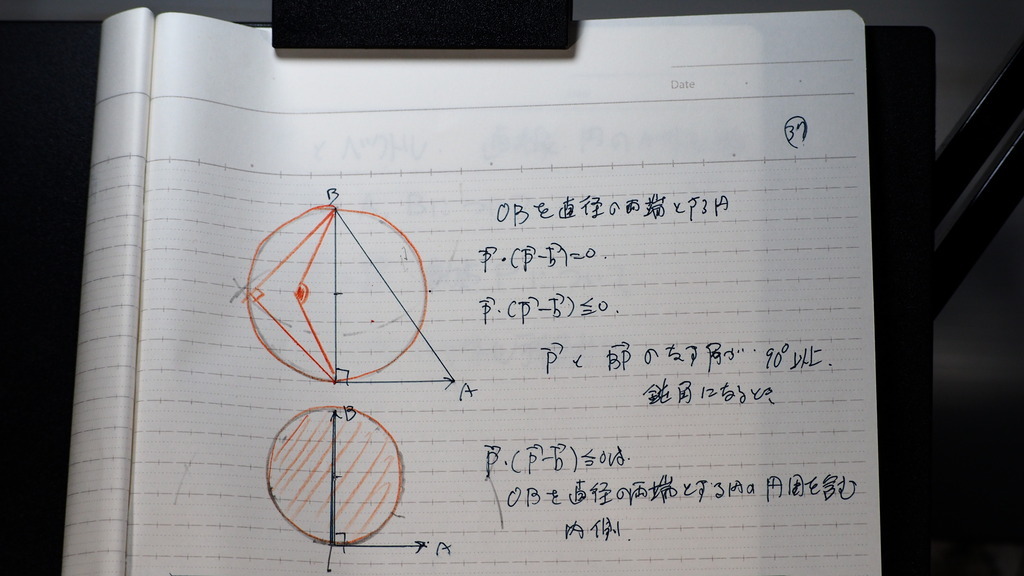 Date
37
B
OBを直径の両端とする円
p⃗・(p⃗-b⃗)=0.
p⃗・(p⃗-b⃗)≦0.
A
p⃗と BP⃗ のなす角が 90°以上.
鈍角になるとき
B
p⃗・(p⃗-b⃗)≦0は.
OBを直径の両端とする円の円周を含む
A
内側.